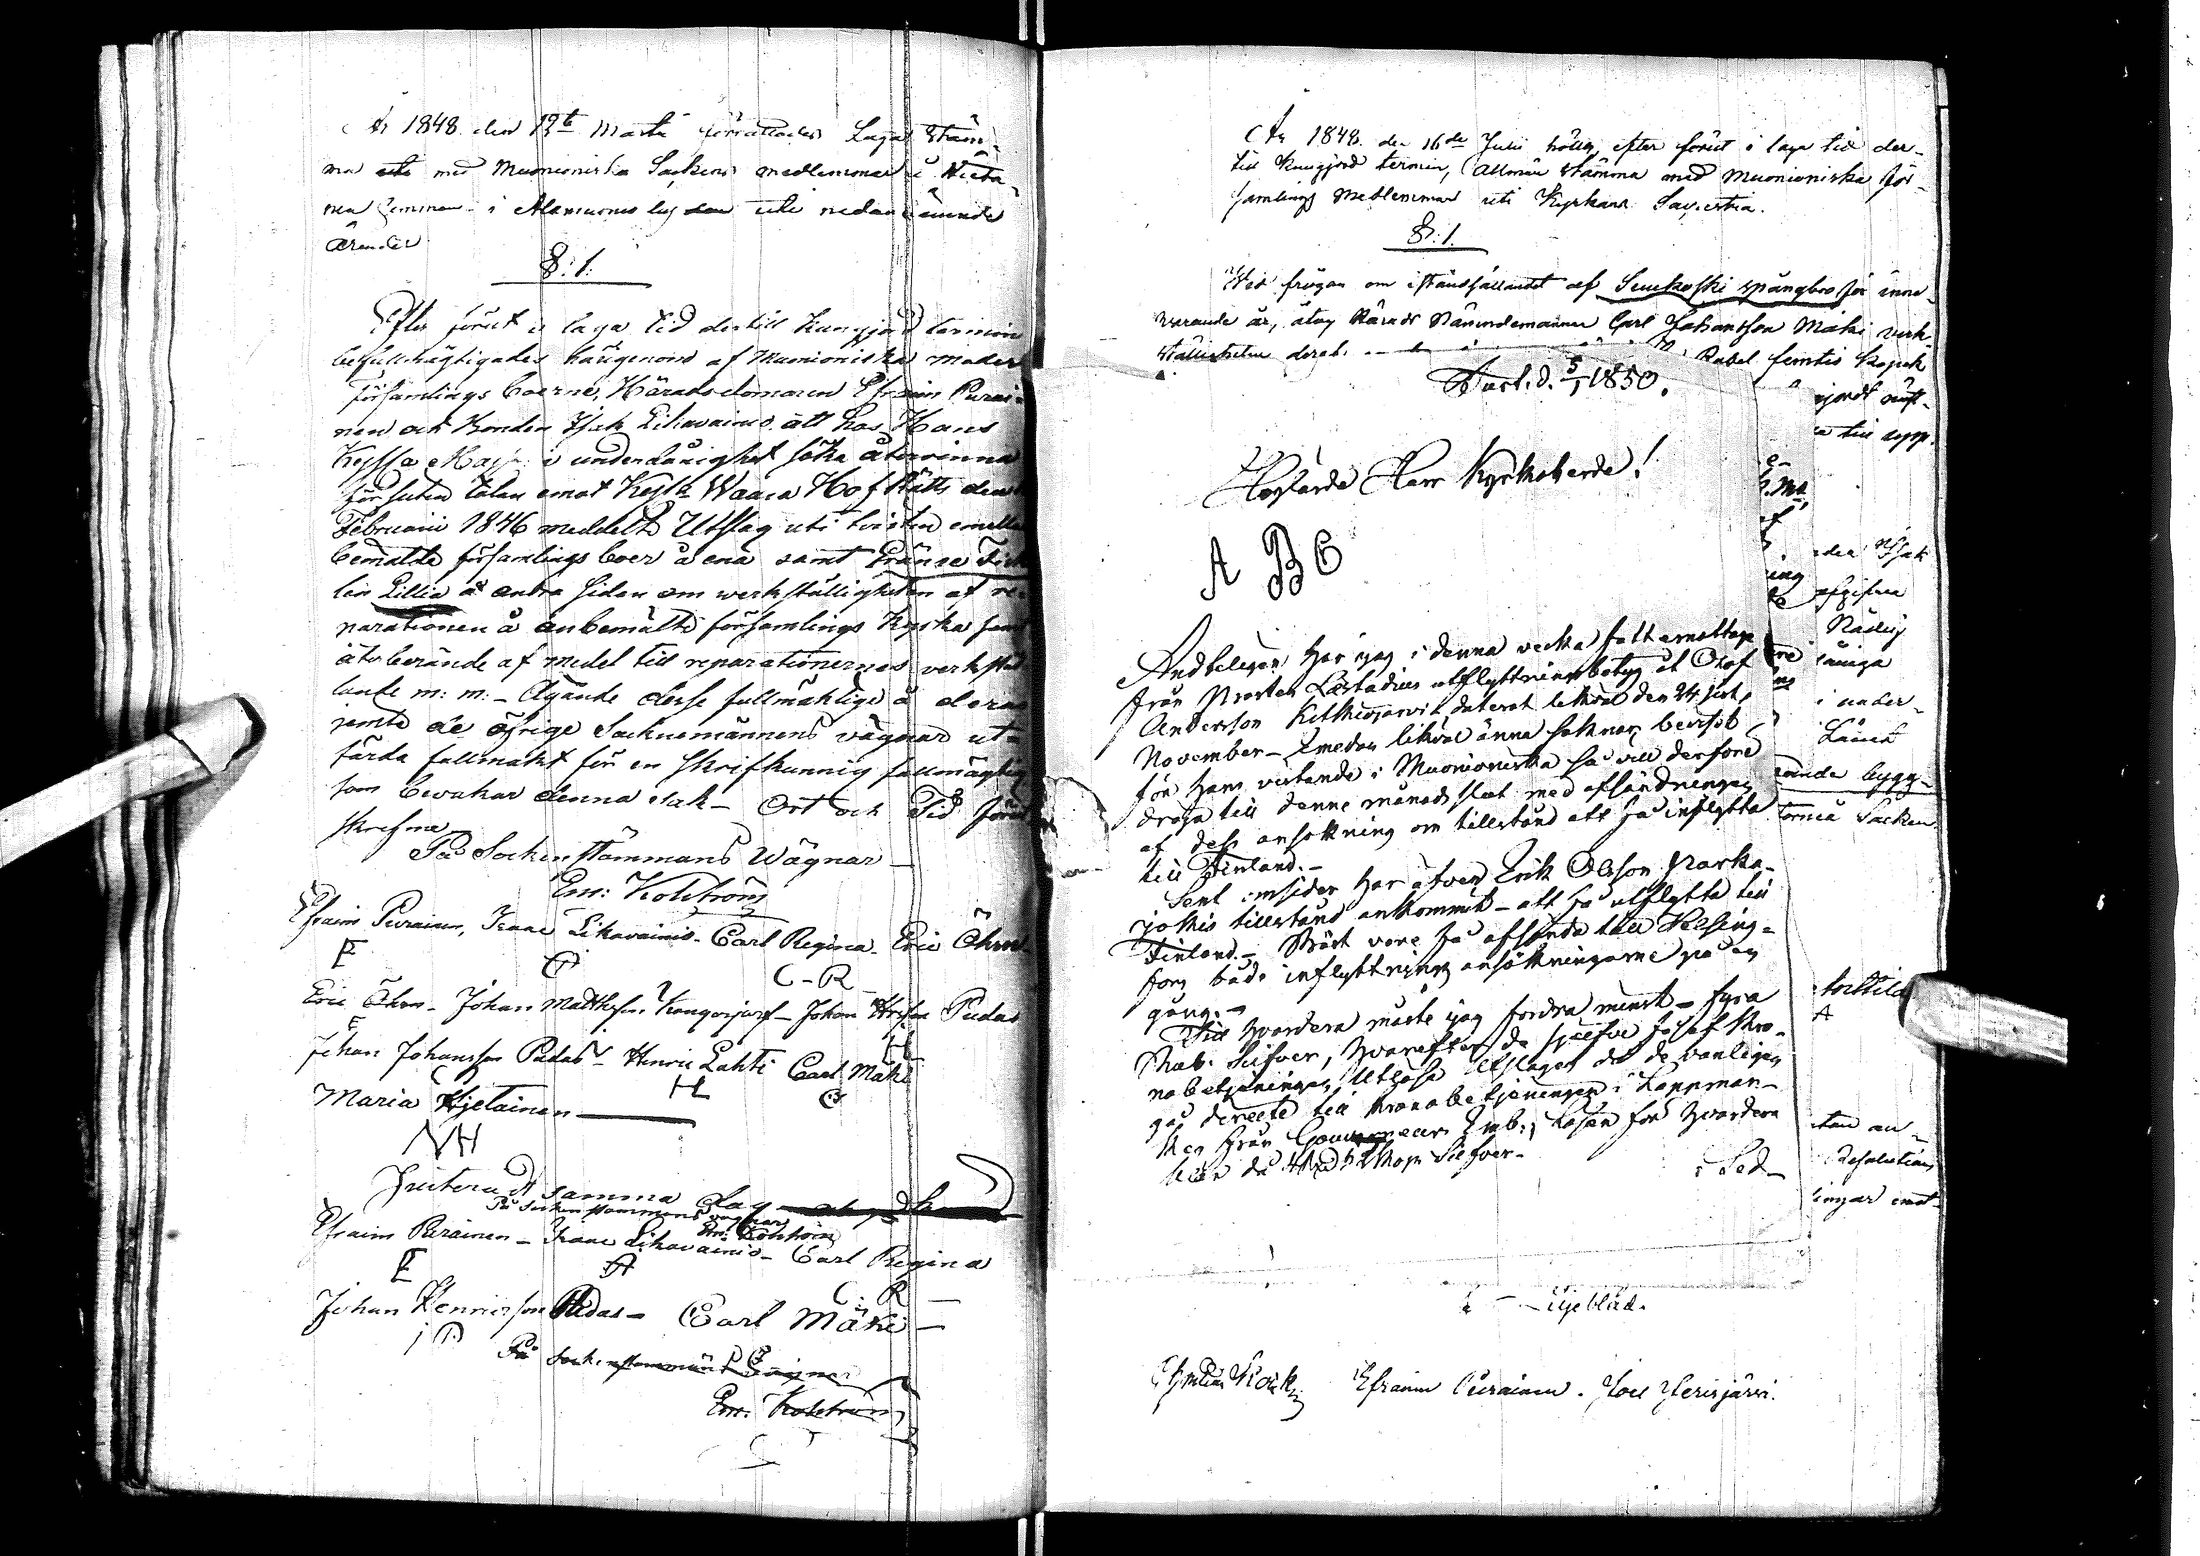 År 1848 den 12te Martii förrättades Laga Stäm-
ma uti med Muonioniska Sockens medlemmar i Hieta-
nen hemman i Alamuonio by uti nedannämnde
ärender
§:1:
Efter förut i laga tid dertill kungjord termin
befullmägtigades härigenom af Muonioniska moder
församlings boerne, Häradsdomaren Efraim Purai-
nen och bonden Isak Likavainio att hos Hans
Kejserl. Maj:t i underdånighet söka återvinna
försuten talan emot Kejsrl. Wasa Hof Rätts den
Februarii 1846 meddelte Utslag uti tvisten emellan
bemälte församlings boer å ena samt Pränse
Lillia å andra sidan om werkställigheten af re-
parationen å ânbemälte församlings Kyrka samt
återbärande af medel till reparationernas verkstäl-
lande m: m: - Ägande desse fullmäktige å deras
jemte de öfrige Socknemännens vägnar ut-
färda fullmakt för en skrifkunnig fullmägtig
som bevakar denna sak - Ort och Tid förut
skrefne
På Sockenstämmans Wägnar
Em: Kolström
Efraim Purainen, Isaac Likavainio - Carl Regina - Eric Öhrn
E C-R
Eric Öhrn - Johan Matthsson Kangosjärf - Johan Pudas
Johan Johansson Pudas - Henric Lahti Carl Mäki
H L C
Maria Hjetainen
MH
Justeradt samma dag
På sockenstämmans vägnar
Em: Kolström
Efraim Purainen - Isaac Likavainio - Carl Regina
E C. R
Johan Hennrisson Pudas - Carl Mäki -
J P
På sockenstämmans vägnar
Em. Kolström
År 1848 den 16de Julii hölls, efter förut i laga tid der-
till kungjord termin, Allmän Stämma med Muonioniska för-
samlings Medlemmar uti Kyrkans Sacristia.
§:1.
Wid frågan om iståndsällandet af Suukoski spångbro för inne-
varande år, åtog Härads Nämndemannen Carl Johansson Mäki verk-
ställigheten deraf Rubel femtio kopek
Turt. d. 5/1 1850.
Högtärde Herr Kyrkoherde!
A B C
Ändteligen har jag i denna vecka fått emottaga
från Prosten Læstadius utflyttningsbetyg åt Olof
Andersson Kitkiöjärvi daterat likväl den 24 sist.
November - Emedan likväl änna saknas bevist
för hans vistande i Muonioniska så vill derföre
dröja till denne månads slut med afsändningen
af dess ansökning om tillstånd att få inflytta
till Finland. -
Sent omsider har äfven Erik Olsson Parka-
jokis tillstånd ankommit - att få utflytta till
Finland. - Bäst vore få afsända till Helsing-
fors både inflyttnings ansökningarne på en
gång. -
För hvardera måste jag fordra minst - fyra
Rub: Silfver, hvarefter de sjelfve få af Kro-
nobetjeningen utlösa Utslaget då de vanligen
gå directe till Kronobetjeningen i Lappmar-
ken från Gouverneurs Emb:, lösen för hvardera
blir då Kop. Silfver -
Led
njordt
till
Isak
afgifne
Näslij
i under-
rande bygg-
Torneå Socken.
an
Resolution
emot
Efraim Purainen. Joel Jerisjärvi.